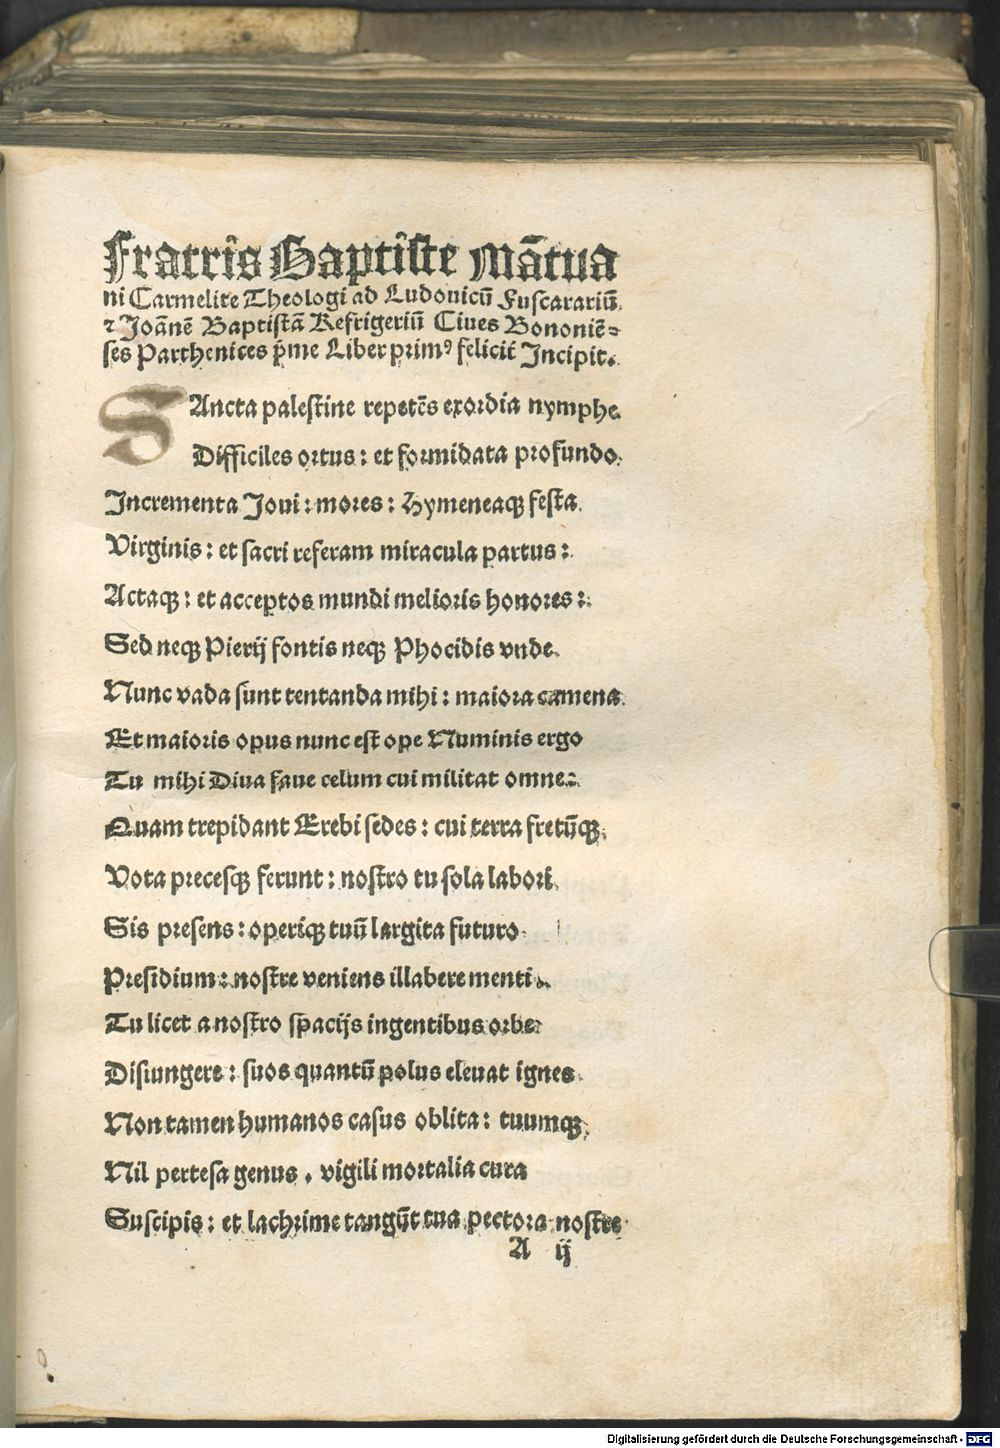 Fratris Baptiste Mãtua
ni Carmelite Theologi ad Ludouicũ Fuscarariũ.
⁊ Joãnẽ Baptistã Refrigeriũ Ciues Bononiẽ⸗
ses Parthenices p̃me Liber primꝰ feliciẗ Incipit.
SAncta palestine repetẽs exordia nymphe
Difficiles ortus: et formidata profundo.
Incrementa Joui: mores: Hymeneaqꝫ festa.
Virginis: et sacri referam miracula partus:
Actaqꝫ: et acceptos mundi melioris honores:
Sed neqꝫ Pierij fontis neqꝫ Phocidis vnde.
Nunc vada sunt tentanda mihi: maiora camena.
Et maioris opus nunc est ope Numinis ergo
Tu mihi Diua faue celum cui militat omne:
Quam trepidant Erebi sedes: cui terra fretũqꝫ.
Vota precesqꝫ ferunt: nostro tu sola labori.
Sis presens: operiqꝫ tuũ largita futuro.
Presidium: nostre veniens illabere menti.
Tu licet a nostro spacijs ingentibus orbe:
Disiungere: suos quantũ polus eleuat ignes.
Non tamen humanos casus oblita: tuumqꝫ.
Nil pertesa genus. vigili mortalia cura
Suscipis: et lachrime tangũt tua pectora nostre
A ij
Digitalisierung gefördert durch die Deutsche Forschungsgemeinschaft - DFG